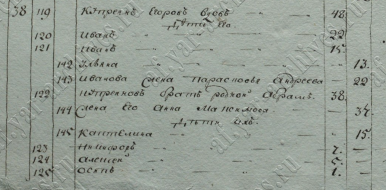 38 119 Купреянъ Сорокъ вдовъ 48.
Дѣти его
120 Иванъ 22
121 Павелъ 15.
142 Ульяна 13.
143 Иванова жена Парасковья Андреева 22
122 Купреяновъ братъ родной Абрамъ 38.
144 жена его Анна Максимова 37.
Дѣти ихъ
145 Капталина 15.
123 Никифоръ 7.
124 Алексей 5.
Осипъ 1.